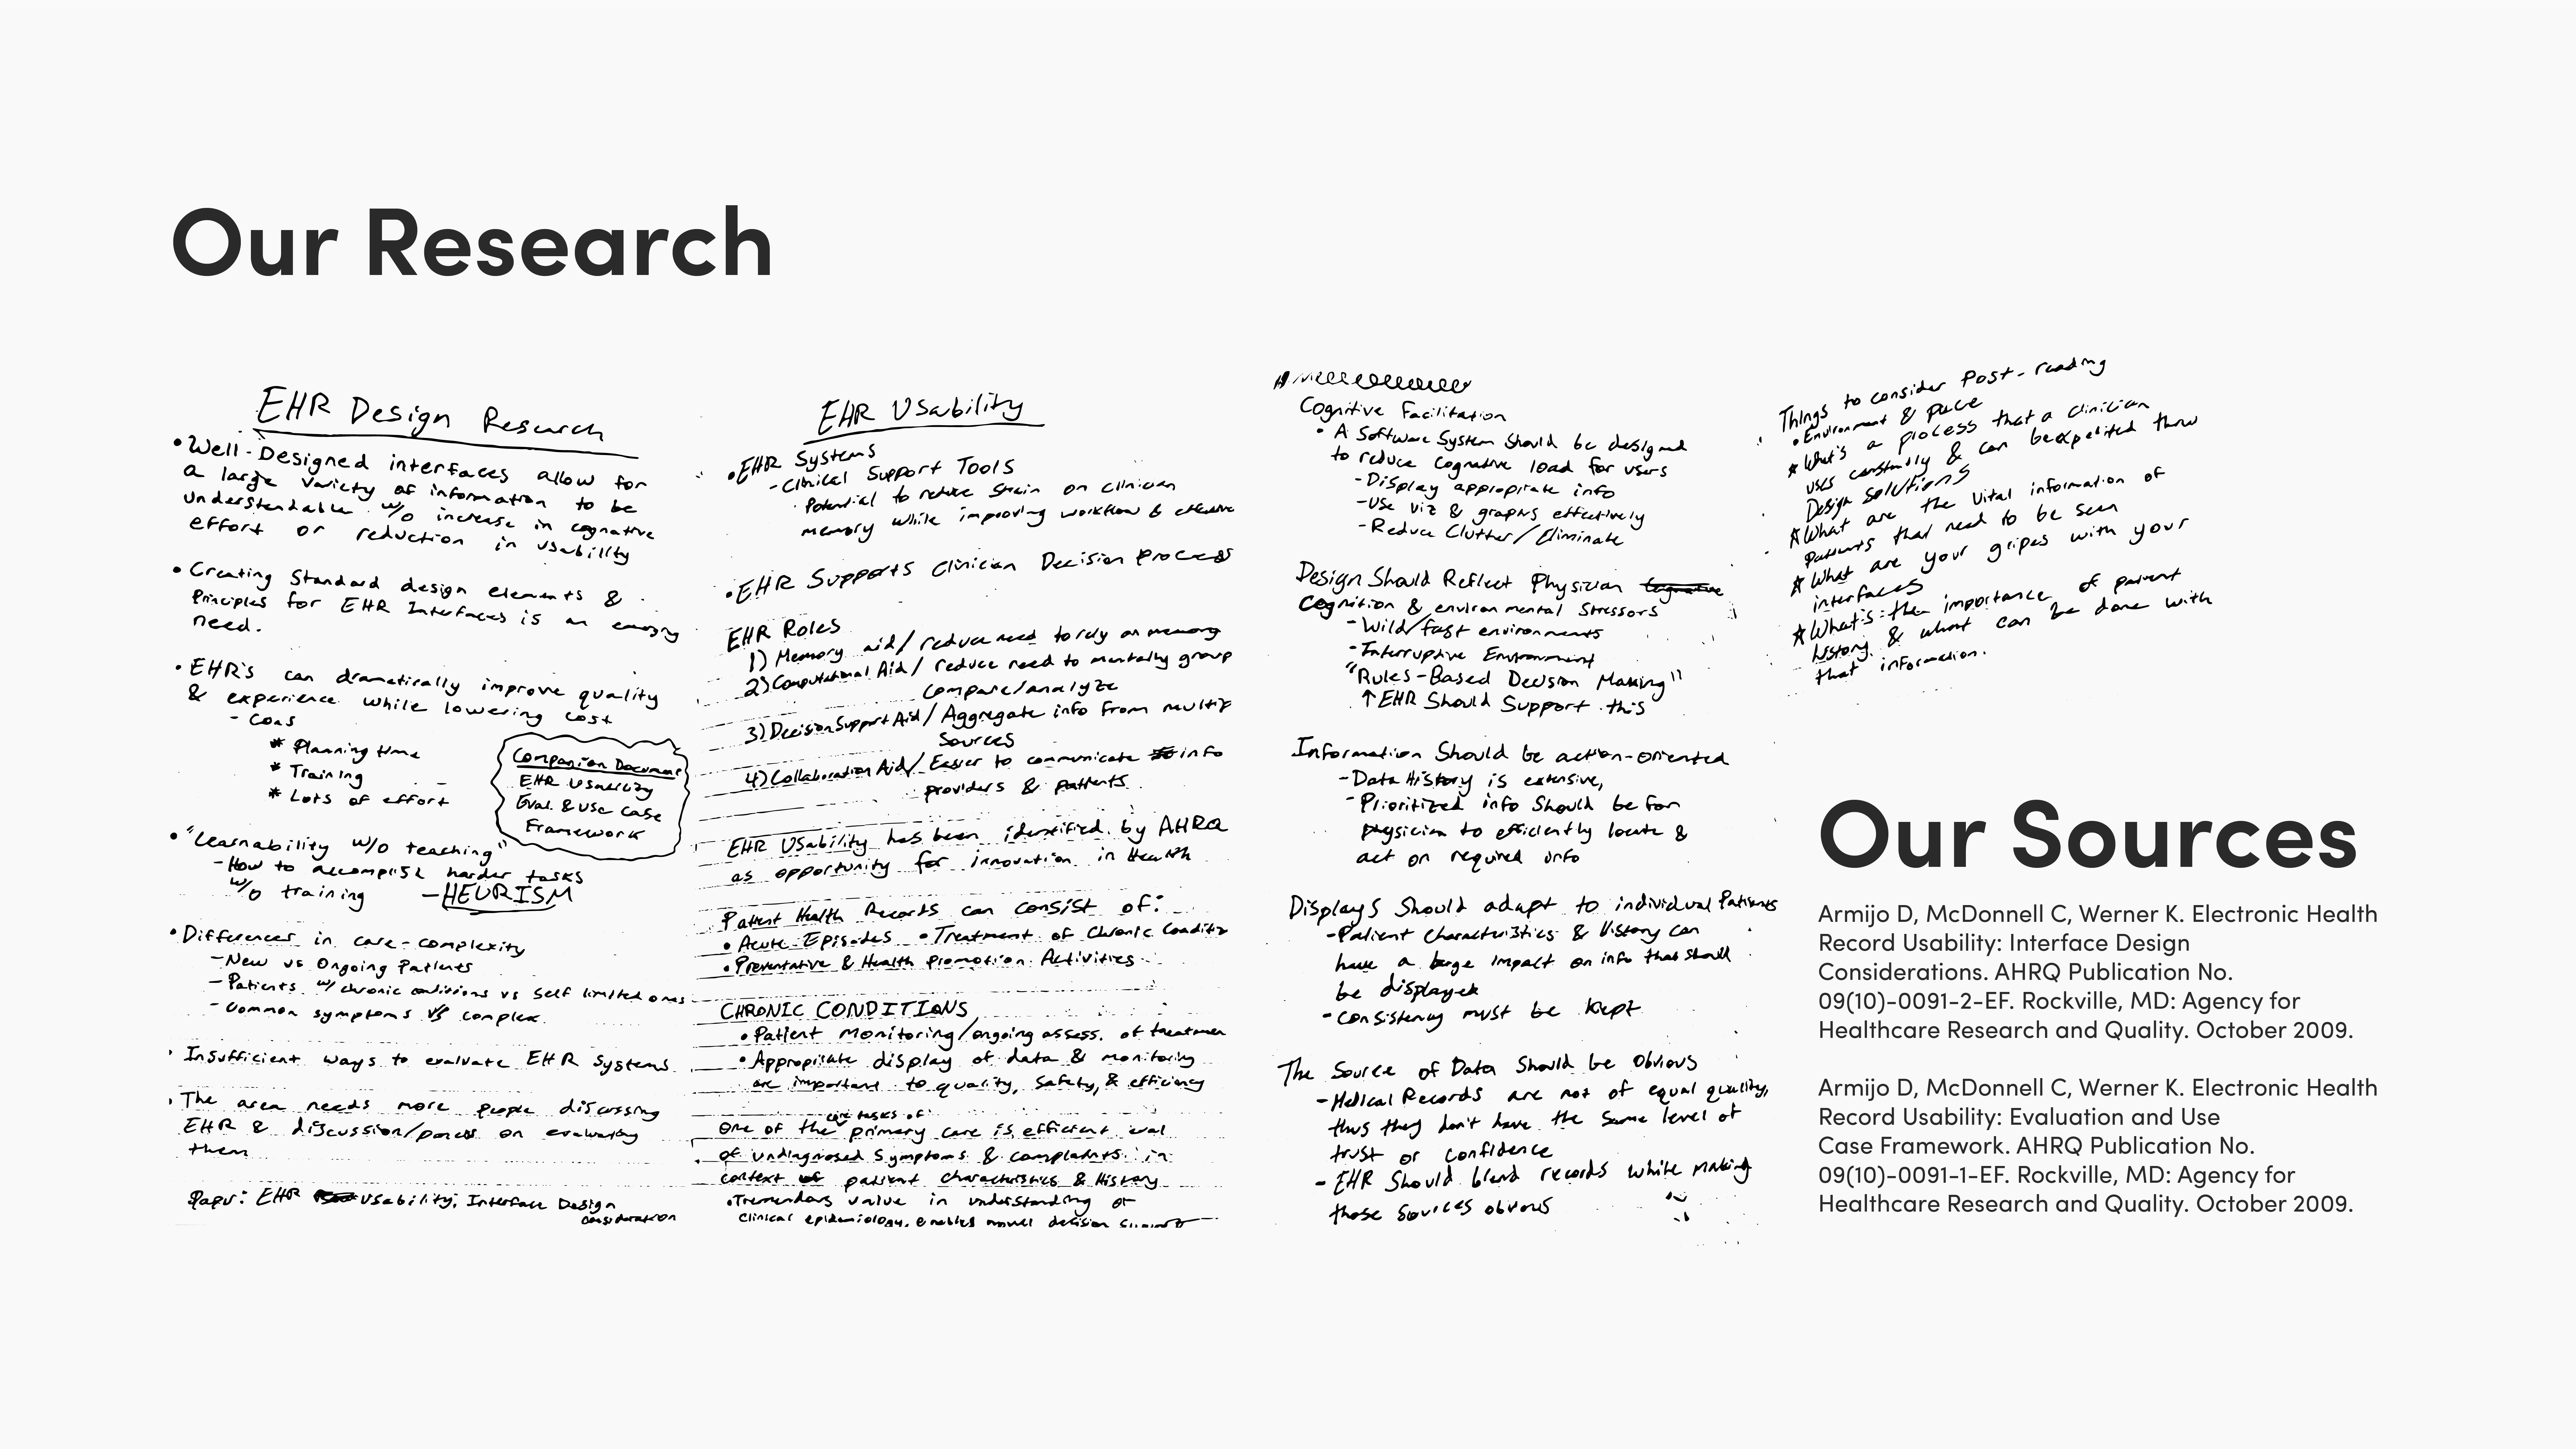 Our Research
EHR Design Research
• Well-Designed interfaces allow for
a large variety of information to be
understandable w/o increase in cognative
effort or reduction in usability
• Creating Standard design elements &
Principles for EHR Interfaces is an
need.
• EHR's can dramatically improve quality
& experience while lowering cost
- Cons
* Planning time
* Training
* Lots of effort
Companion Document
EHR Usability
Eval. & Use Case
Framework
• "Learnability w/o teaching"
- How to accomplish harder tasks
w/o training - HEURISM
• Differences in care-complexity
- New vs Ongoing Patients
- Patients w/ chronic conditions vs Self limited ones
- Common symptoms vs complex
• Insufficient ways to evaluate EHR Systems
• The area needs more people discussing
EHR & discussion/ on evaluating
them
Paper: EHR Usability; Interface Design
consideration
EHR Usability
• EHR Systems
- Clinical Support Tools
• Potential to reduce strain on clinician
memory while improving workflow &
• EHR Supports Clinician Decision Process
EHR Roles
1) Memory aid/ reduce need to rely on memory
2) Computational Aid/ reduce need to mentally group
compare/analyze
3) Decision Support Aid/ Aggregate info from
Sources
4) Collaboration Aid/ Easier to communicate info
providers & patients
EHR Usability has been identified by AHRQ
as opportunity for innovation in Health
Patient Health Records can consist of:
• Acute Episodes • Treatment of Chronic
• Preventative & Health promotion Activities
CHRONIC CONDITIONS
• Patient Monitoring/ongoing assess. of
• Appropriate display of data & monitoring
are important to quality, safety, & efficiency
core tasks of
One of the primary care is efficient eval
of undiagnosed Symptoms & complaints in
context of patient characteristics & History
• Tremendous value in understanding of
clinical epidemiology. enables novel decision
Cognitive Facilitation
• A Software System should be designed
to reduce cognative load for users
- Display appropriate info
- Use viz & graphs effectively
- Reduce Clutter/Eliminate
Design Should Reflect Physician
Cognition & environmental Stressors
- Wild/fast environments
- Interruptive Environment
"Rules-Based Decision Making"
↑ EHR Should Support this
Information Should be action-oriented
- Data History is extensive,
- Prioritized info Should be for
physician to efficiently locate &
act on required info
Displays Should adapt to individual Patients
- Patient Characteristics & History can
have a large impact on info that should
be displayed
- Consistency must be kept
The Source of Data Should be Obvious
- Medical Records are not of equal quality,
thus they don't have the same level of
trust or confidence
- EHR Should blend records while making
those sources obvious
Things to consider Post-reading
• Environment & pace
* What's a process that a clinician
uses constantly & can be thru
Design solutions
* What are the vital information of
patients that need to be seen
* What are your gripes with your
interfaces
* What's the importance of patient
history & what can be done with
that information.
Our Sources
Armijo D, McDonnell C, Werner K. Electronic Health
Record Usability: Interface Design
Considerations. AHRQ Publication No.
09(10)-0091-2-EF. Rockville, MD: Agency for
Healthcare Research and Quality. October 2009.
Armijo D, McDonnell C, Werner K. Electronic Health
Record Usability: Evaluation and Use
Case Framework. AHRQ Publication No.
09(10)-0091-1-EF. Rockville, MD: Agency for
Healthcare Research and Quality. October 2009.